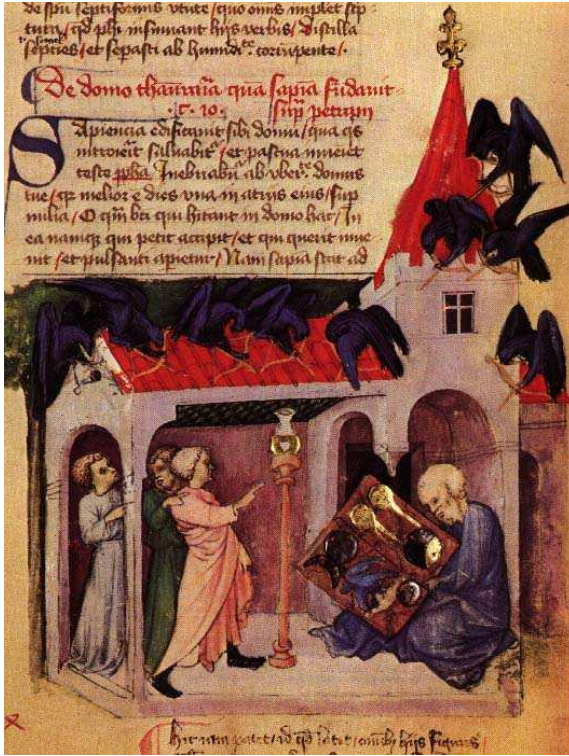 de spu septiformis vtute / quo omis implet scp
tura / qd phi insinuant hijs verbis / Distilla
septies / et separasti ab humidite corrupente /.
De domo thauraria qua sapia fudauit
.C. 10. sup petram
Sapiencia edificauit sibi domu / qua qs
introierit saluabit / et pascua inueiet
teste ppha Inebriabut ab vbert domus
tue / qr melior e dies vna in atrijs eius / sup
milia / O qm bti qui hitant in domo hac / In
ea namqz qui petit accipit / et qui querit inue-
nit / et pulsanti apietur / Nam sapia stat ad
patet / id qd latet / hijs figuris